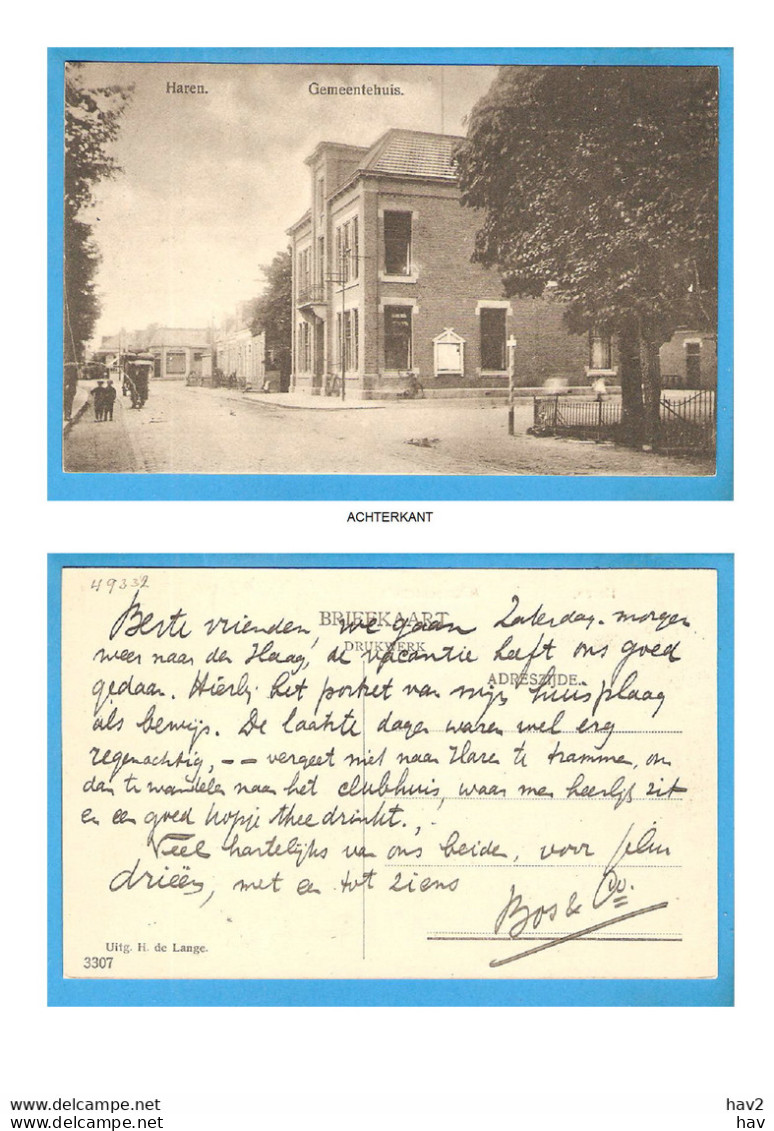 Haren.
Gemeentehuis.
ACHTERKANT
49332
BRIEFKAART
DRUKWERK
ADRESZIJDE.
Beste vrienden, we gaan Zaterdag-morgen
weer naar den Haag, de vacantie heeft ons goed
gedaan. Hierbij het portret van mijn huisplaag
als bewijs. De laatste dagen waren wel erg
regenachtig, -- vergeet niet naar Haren te trammen, om
dan te wandelen naar het clubhuis, waar men heerlijk zit
en een goed kopje thee drinkt.
Veel hartelijks van ons beiden, voor jelui
drieën, met en tot ziens
Bos & Co.
Uitg. H. de Lange.
3307
hav2
Delcampe.net
hav